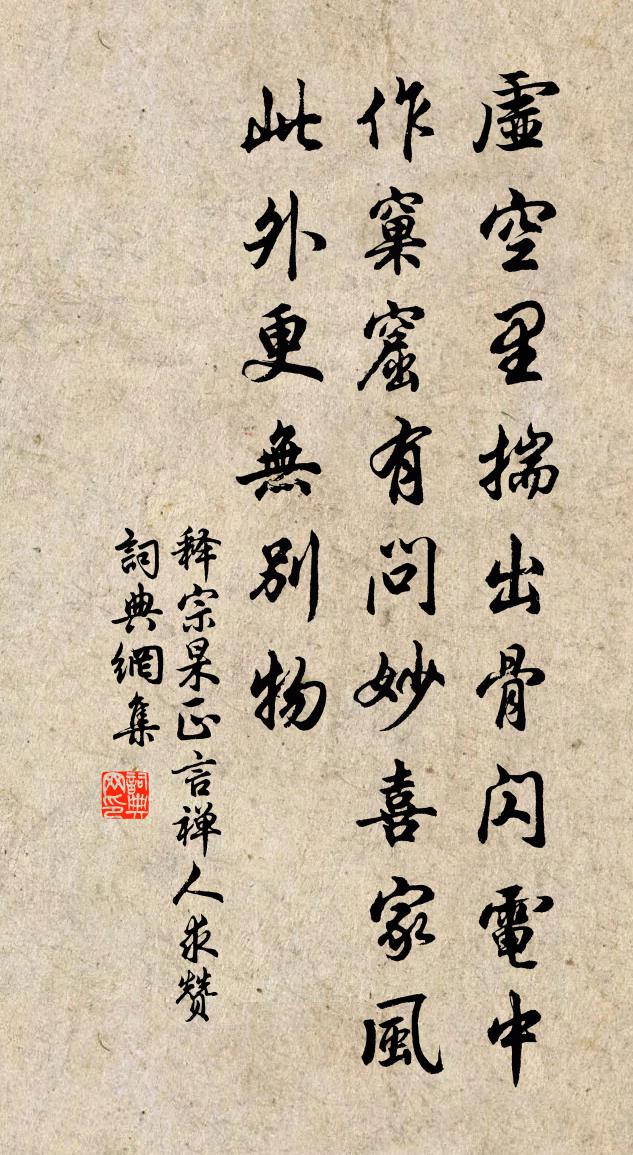 虛空里揣出骨閃電中
作窠窟有問妙喜家風
此外更無別物
释宗杲正言禅人求贊
詞典網集
詞典网印